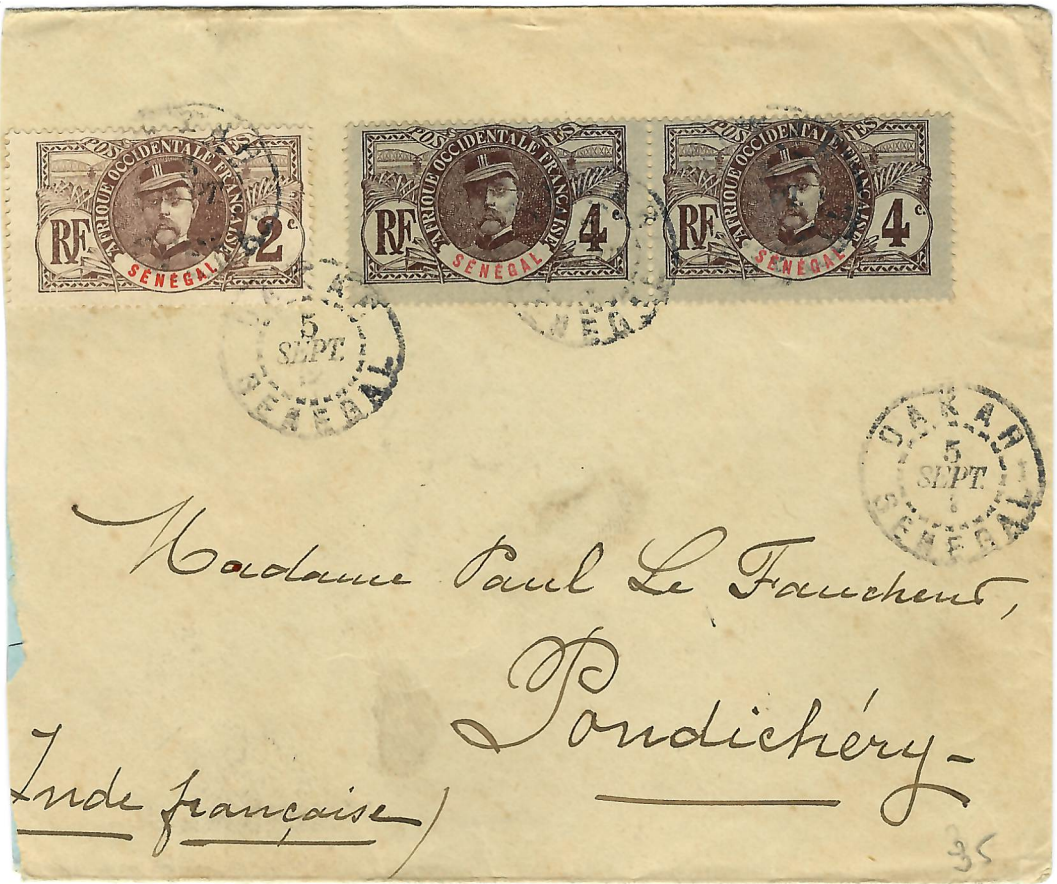 POSTES
AFRIQUE OCCIDENTALE FRANÇAISE
RF 2 c.
SÉNÉGAL
POSTES
AFRIQUE OCCIDENTALE FRANÇAISE
RF 4 c.
SÉNÉGAL
POSTES
AFRIQUE OCCIDENTALE FRANÇAISE
RF 4 c.
SÉNÉGAL
DAKAR
5
SEPT.
SENEGAL
SENEGAL
DAKAR
5
SEPT.
SENEGAL
Madame Paul Le Faucheur,
Pondichéry-
Inde française)
35